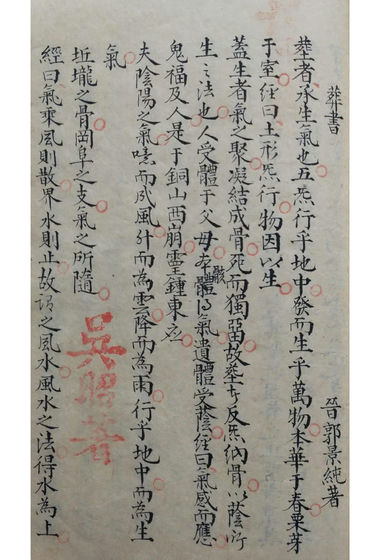 葬書
晉郭景純著
塟者承生氣也五炁行乎地中發而生乎萬物木華于春粟芽
于室經曰土形炁行物因以生
蓋生者氣之聚凝結成骨死而獨畱故塟者反炁納骨以蔭所
生之法也人受體于父母本體得氣遺體受蔭經曰氣感而應
骸
鬼福及人是于銅山西崩靈鍾東應
夫陰陽之氣噫而為風升而為雲降而為雨行乎地中而為生
氣
坵壠之骨岡阜之支氣之所隨
經曰氣乘風則散界水則止故謂之風水風水之法得水為上
吳昭著